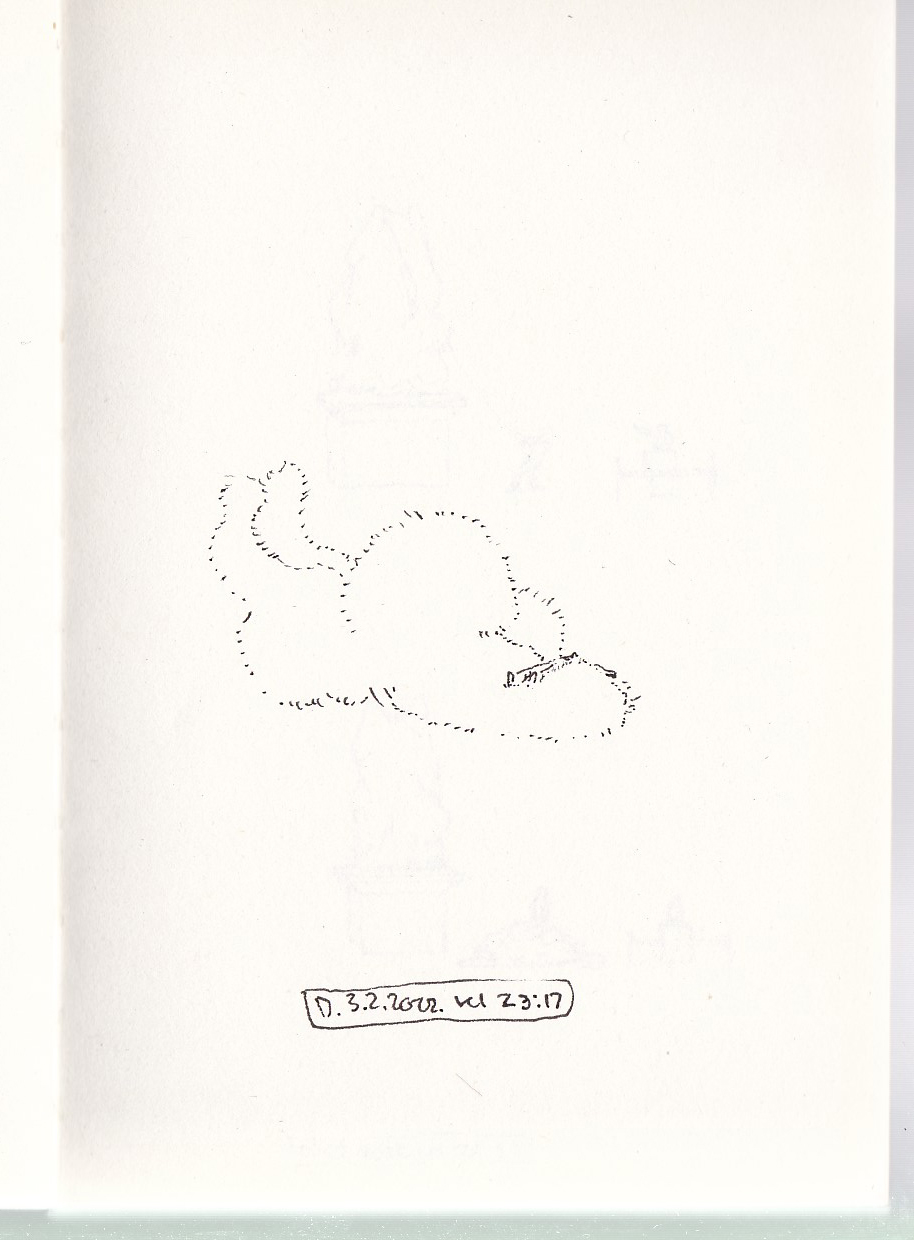 D. 3.2.2022. kl 23:17